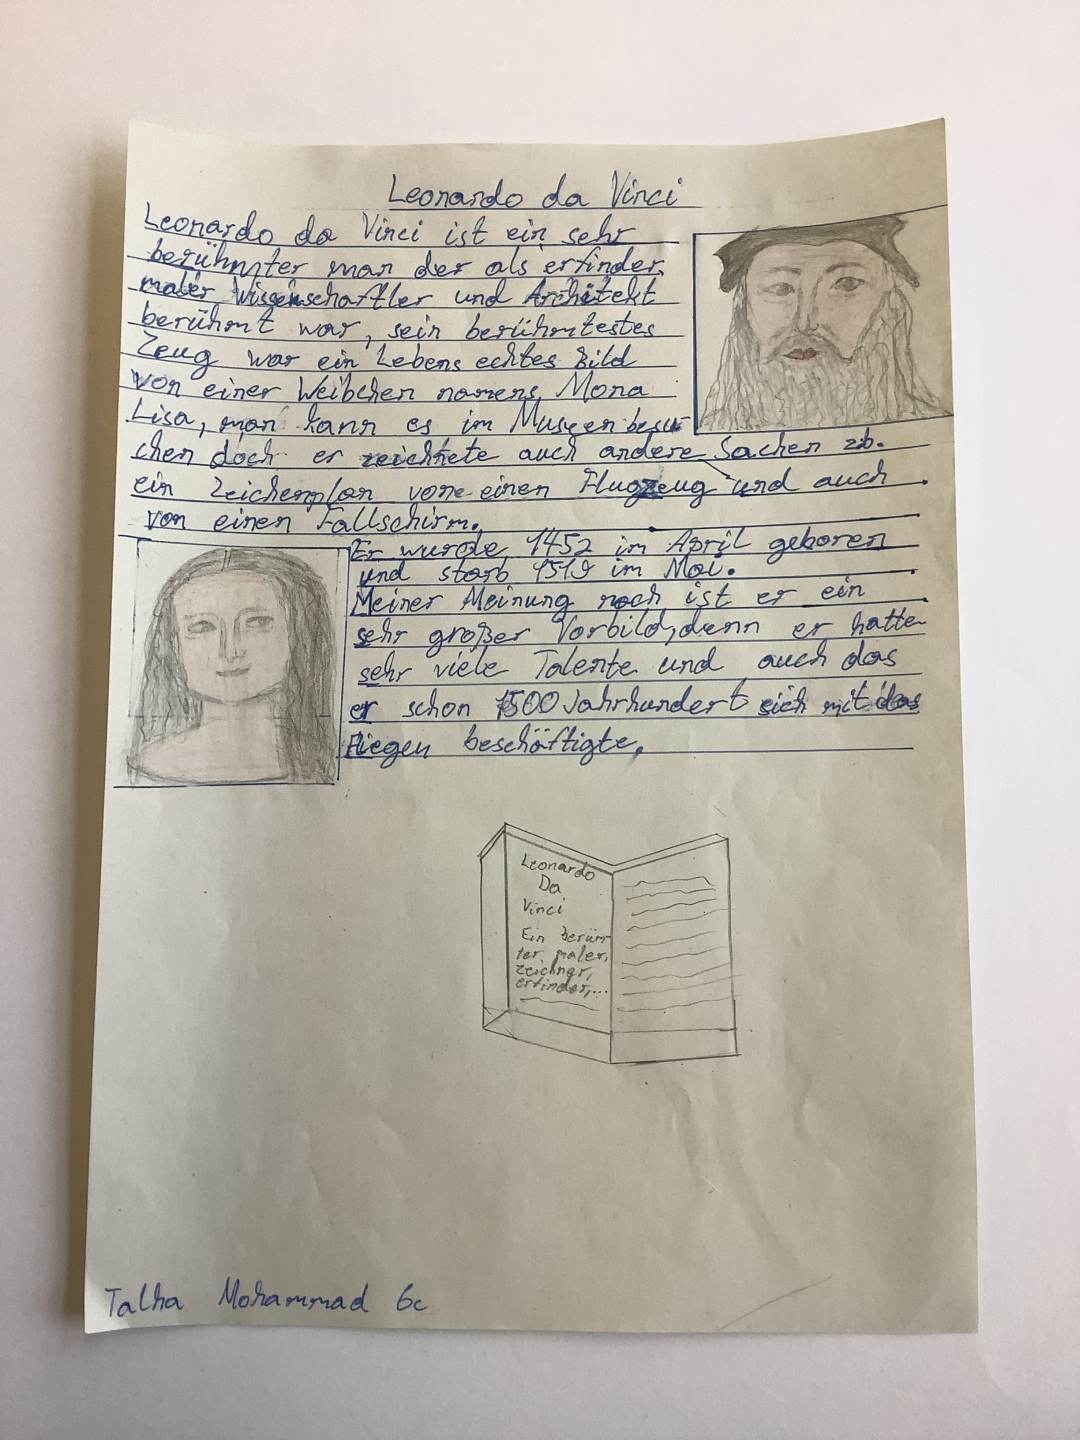 Leonardo da Vinci
Leonardo da Vinci ist ein sehr
berühmter man der als erfinder,
maler, Wissenschaftler und Architekt
berühmt war, sein berühmtestes
Zeug war ein Lebens echtes Bild
von einer Weibchen namens Mona
Lisa, man kann es im Museen besu-
chen doch er zeichnete auch andere Sachen zb.
ein Zeichenplan von einen Flugzeug und auch
von einen Fallschirm.
Er wurde 1452 im April geboren
und starb 1519 im Mai.
Meiner Meinung nach ist er ein
sehr großer Vorbild, denn er hatte
sehr viele Talente und auch das
er schon 1500 Jahrhundert sich mit das
Fliegen beschäftigte.
Leonardo
Da
Vinci
Ein berüm
ter, maler,
zeichner,
erfinder,...
Talha Mohammad 6c